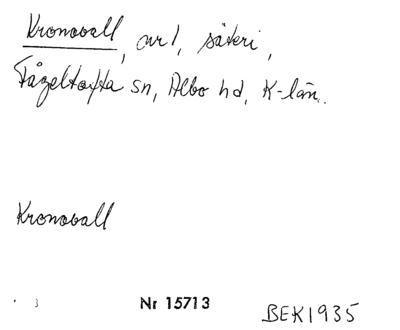 Kronovall, avl, säteri,
Fågeltofta sn, Albo hd, K-län.
Kronovall
3
Nr 15713
BEK1935